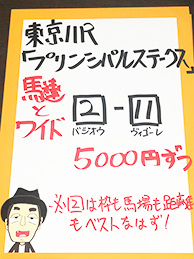 東京11R
「プリンシパルステークス」
馬連
と
ワイド
2-11
バシオウ ヴィゴーレ
5000円ずつ
※2は枠も馬場も距離
もベストなはず!